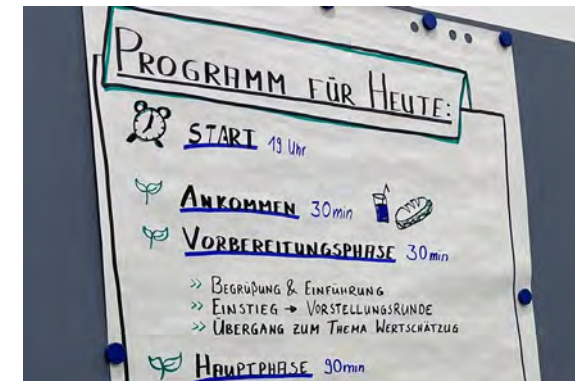 PROGRAMM FÜR HEUTE:
START 19 Uhr
ANKOMMEN 30min
VORBEREITUNGSPHASE 30min
>> BEGRÜßUNG & EINFÜHRUNG
>> EINSTIEG → VORSTELLUNGSRUNDE
>> ÜBERGANG ZUM THEMA WERTSCHÄTZUG
HAUPTPHASE 90min